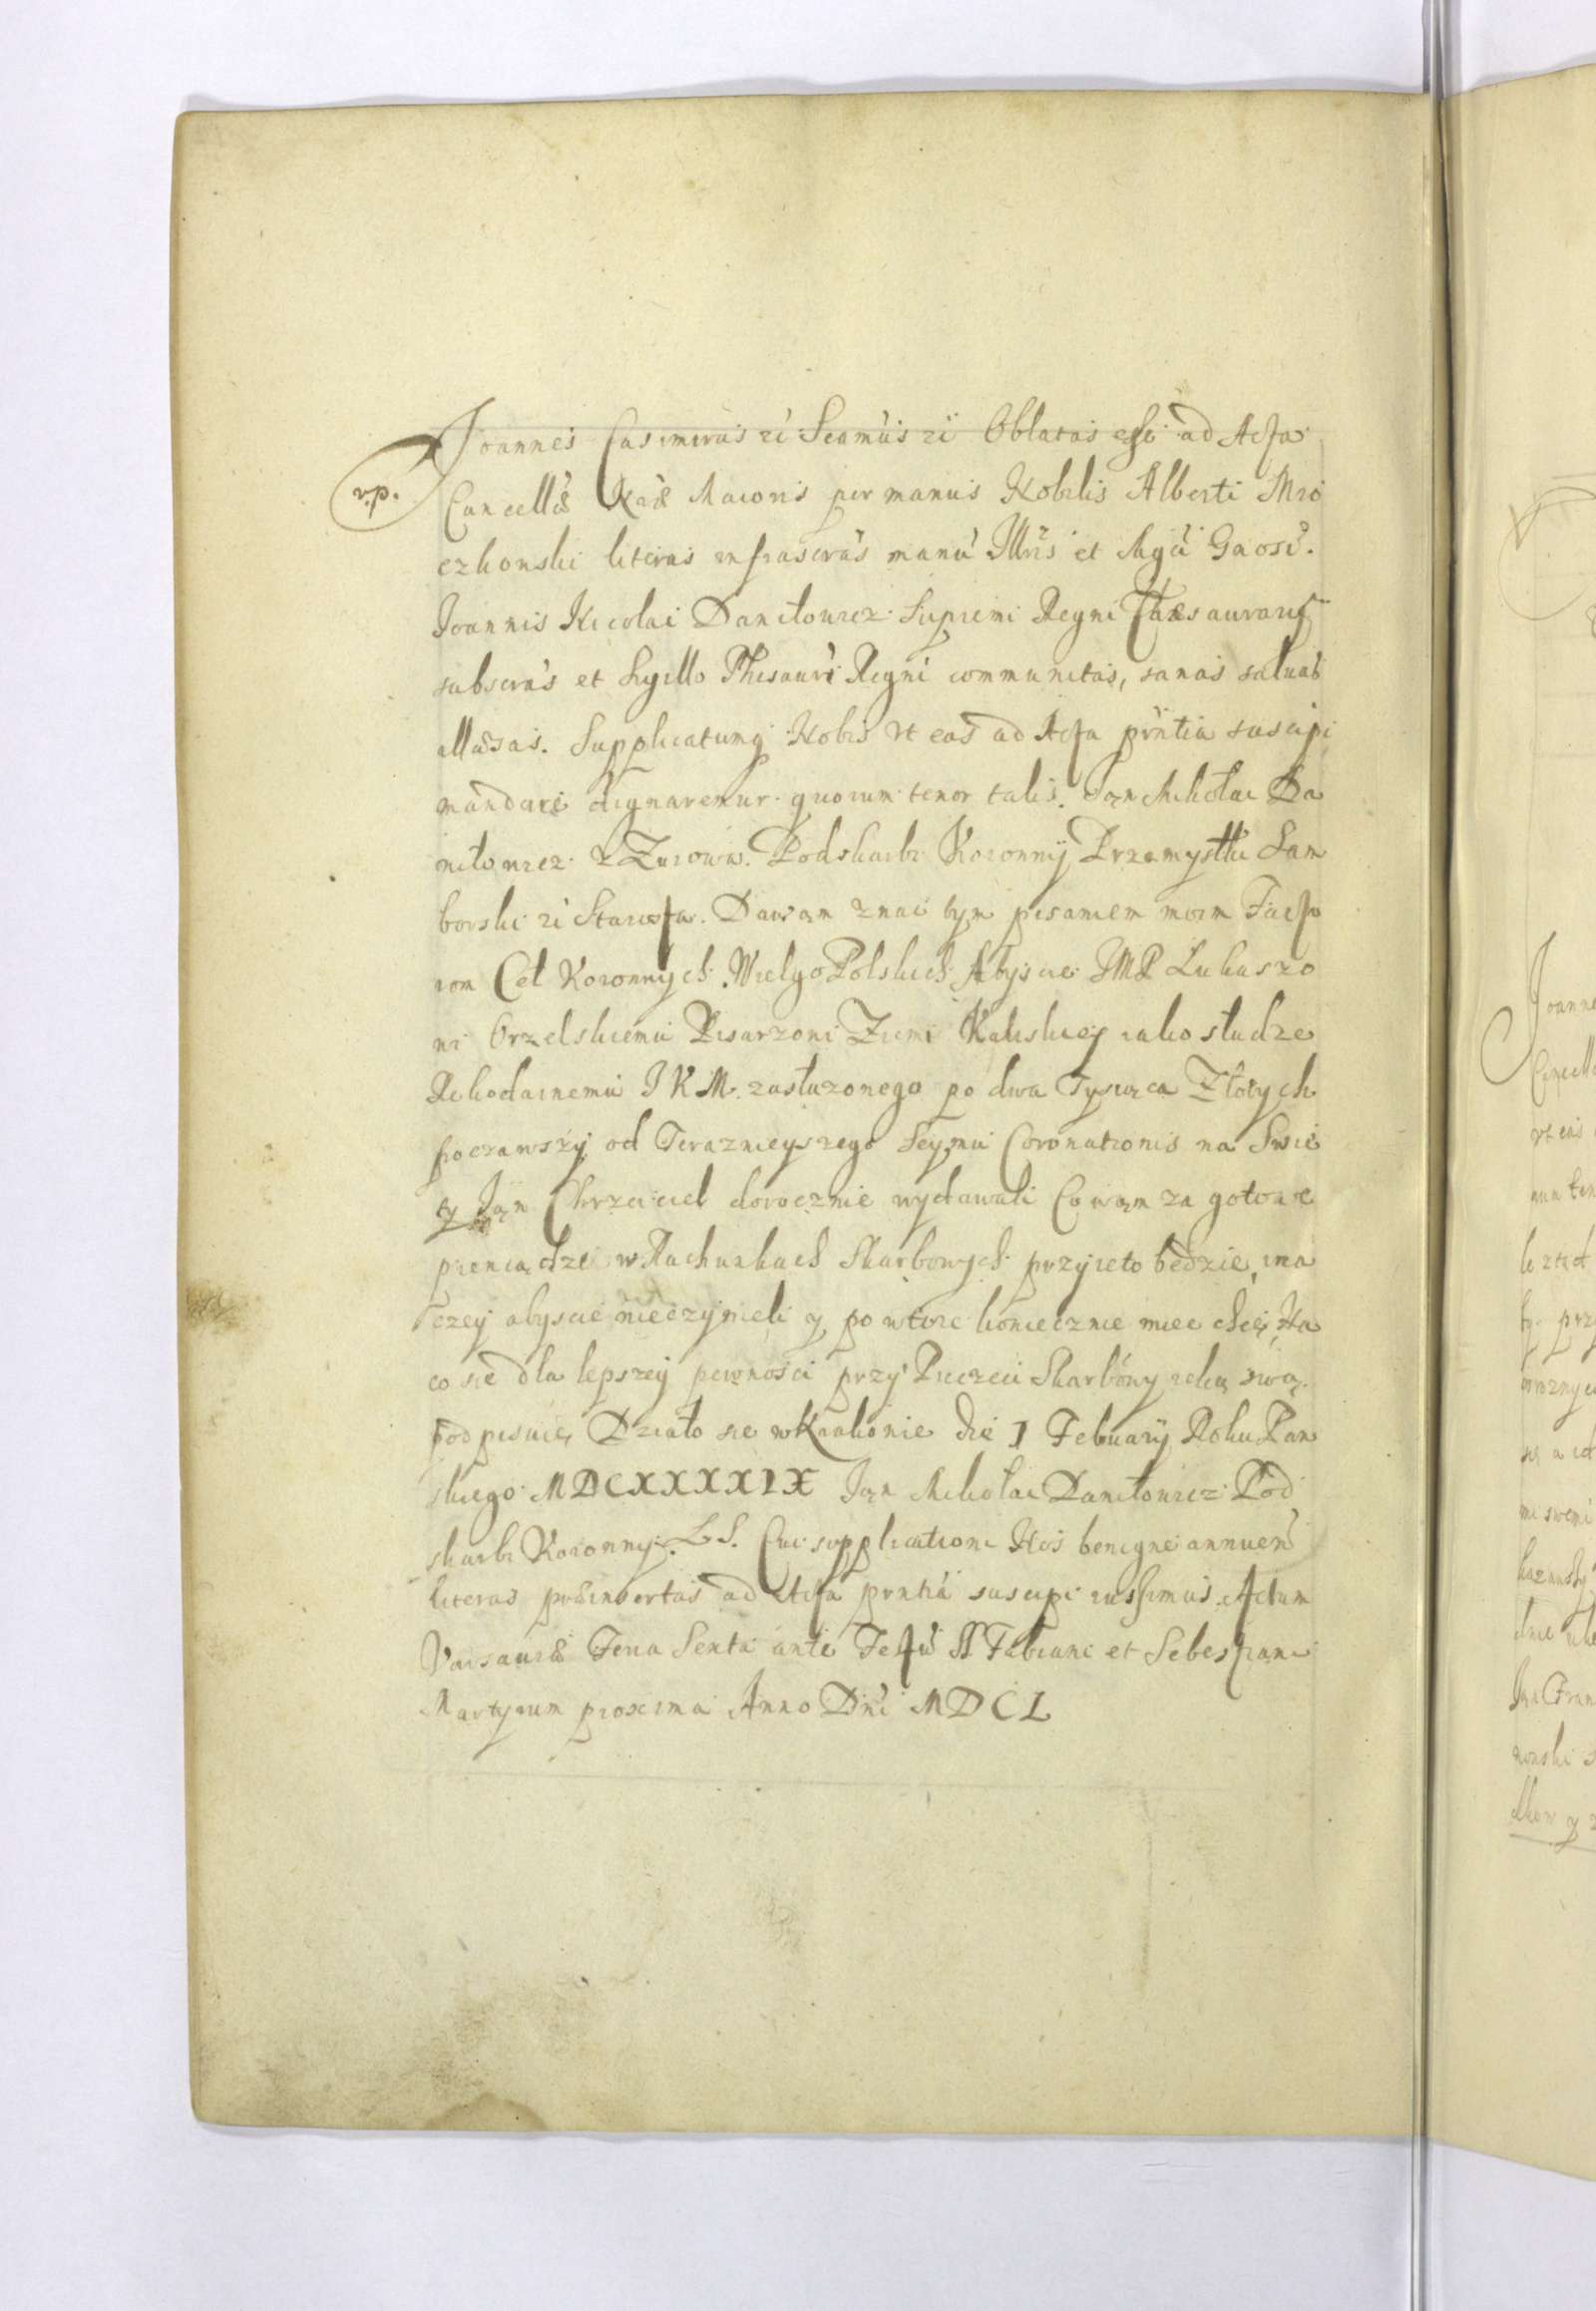 Joannes Casimirus etc Seamus etc Oblatas esse ad Acta
v.p.
Cancellae Nrae Maioris per manus Nobilis Alberti Mro
czkonski literas infrascras manu Illris et Mgci Gnosi.
Joannis Nicolai Daniłowicz Supremi Regni Thaesaurarij
subscras et Sygillo Thesauri Regni communitas, sanas saluas
illaesas. Supplicatumq Nobis vt eas ad Acta pñtia suscipi
mandare dignaremur quorum tenor talis. Jan Mikołai Da
niłowicz z Zurowa. Podskarbi Koronnÿ Przemyslki Sam
borski etc Starosta. Dawam znac tym pisaniem moim Facto
rom Cel Koronnych Wielgo Polskich Abyscie JMP Lukaszo
wi Orzelskiemu Pisarzowi Ziemi Kaliskiey iako słudze
Rekodainemu J K M. zasłuzonego po dwa Tysiąca Złotych
począwszy od Teraznieyszego Seymu Coronationis na Swie
ty Jan Chrzciciel dorocznie wydawali Co wam za gotowe
pieniądze w Rachunkach Skarbowych przyieto będzie, ina
czey abyscie nieczynieli y po wtore koniecznie miec chcę, Na
co sie dla lepszey pewnosci przy Pieczeci Skarbowy reką swą
podpisuię, Działo sie w Krakowie die 1 Februarÿ Roku Pan
skiego MDCXXXXIX Jan Mikołai Daniłowicz Pod
skarbi Koronny. L S. Cui supplicationi Nos benigne annuen
literas praeinsertas ad Acta prntia suscipi iussimus. Actum
Varsauiae Feria Sexta ante Festu SS Fabiani et Sebestiani
Martyrum proxima Anno Dni MDCL